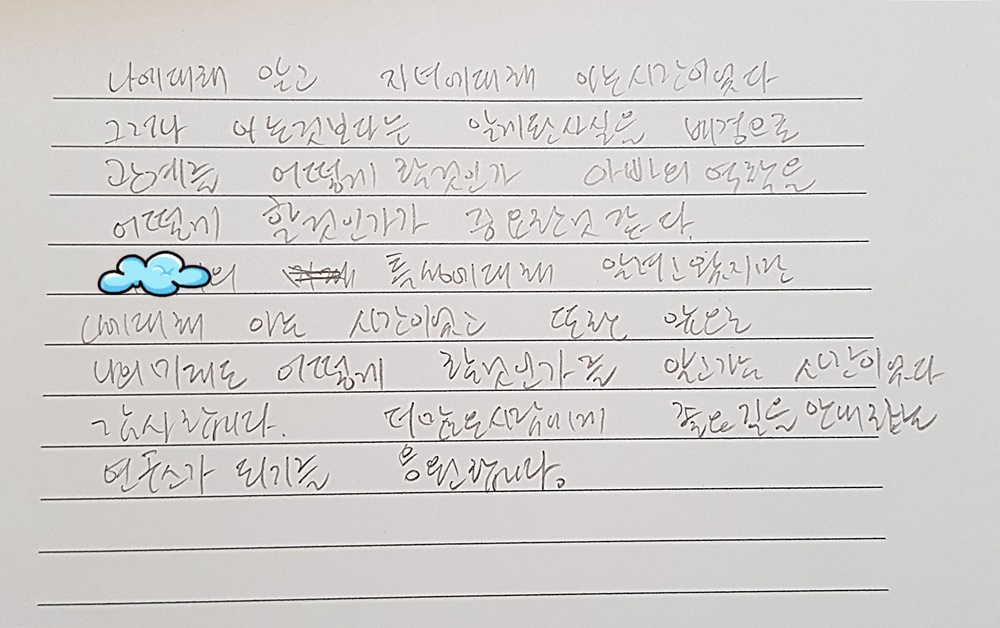 나에대해 알고 자녀에대해 아는시간이었다
그러나 아는것보다는 알게된사실을 배경으로
관계를 어떻게 할것인가 아빠의 역할을
어떻게 할것인가가 중요한것 같다.
의 특성에대해 알려고왔지만
나에대해 아는 시간이었고 또한 앞으로
나의미래도 어떻게 할것인가를 알고가는 시간이었다
감사합니다. 더많은사람에게 좋은길을 안내하는
연구소가 되기를 응원합니다.